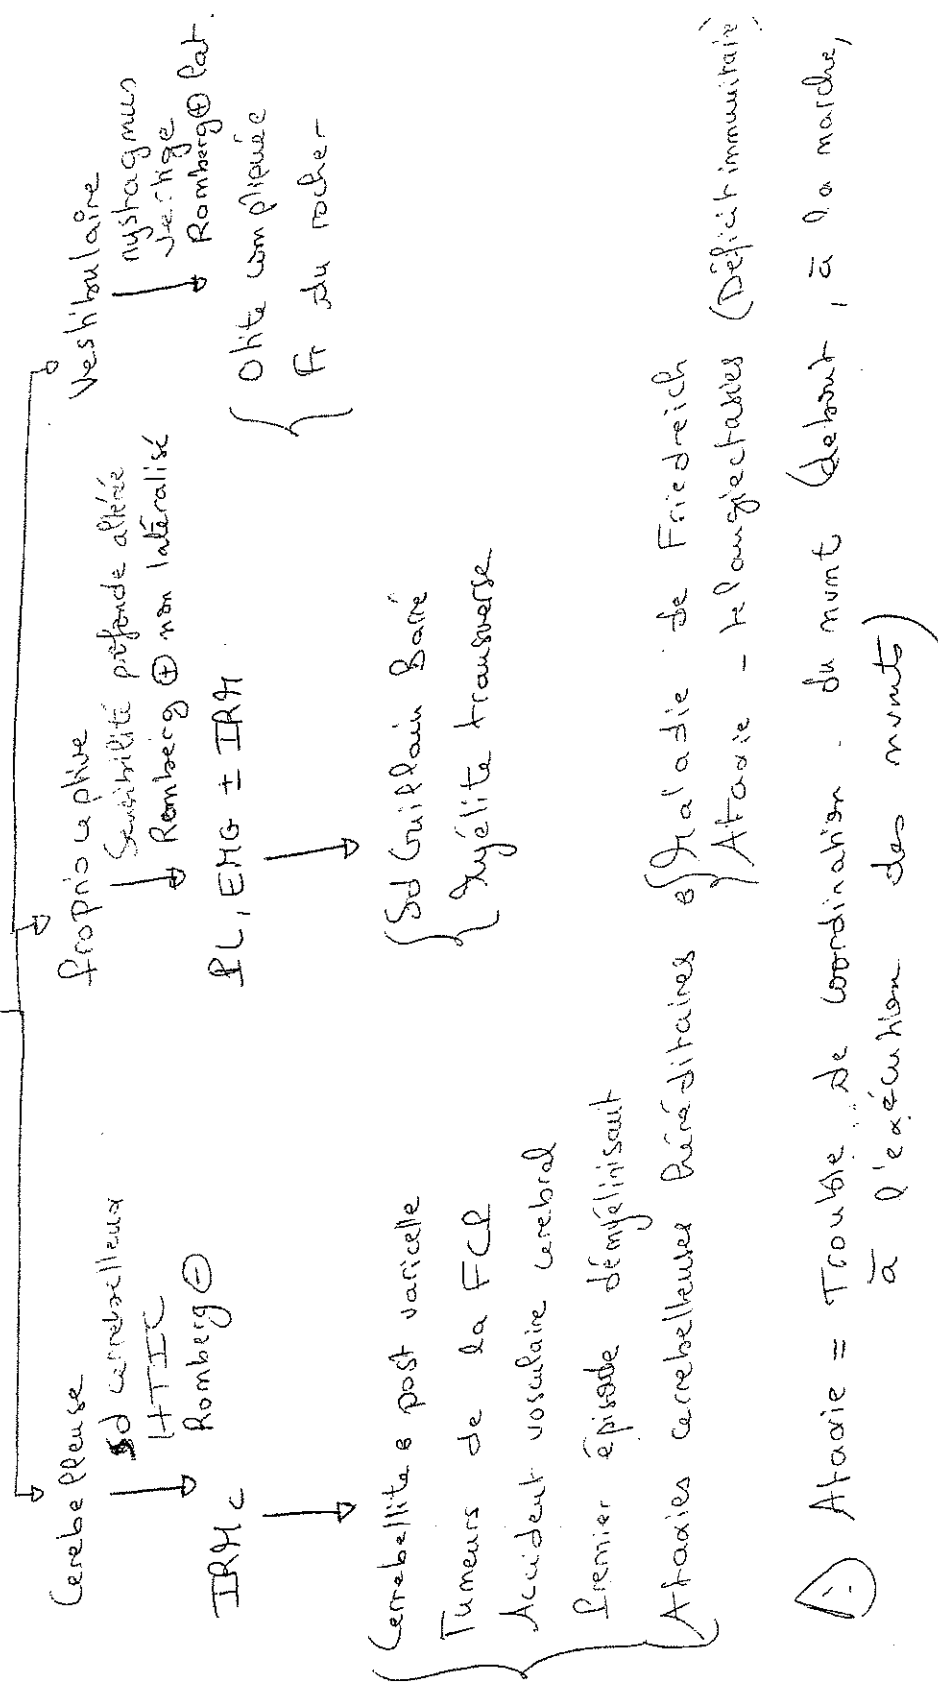 Cerebelleuse
Sd cerrebelleux
HTIC
Romberg ⊖
IRM c
Cerrebellite post varicelle
Tumeurs de la FCP
Accident vasculaire cerebral
Premier épisode démyélinisant
Ataxies cerrebelleuses héréditaires
Maladie de Friedreich
Ataxie - telangiectasies (Déficit immunitaire)
Proprioceptive
Sensibilité profonde altérée
Romberg ⊕ non latéralisé
PL, EMG ± IRM
Sd Guillain Barré
Myélite transverse
Vestibulaire
nystagmus
vertige
Romberg ⊕ lat.
Otite compliquée
Fr du rocher
Ataxie = Trouble de coordination du mvmt (debout, à la marche,
à l'exécution des mvmts)